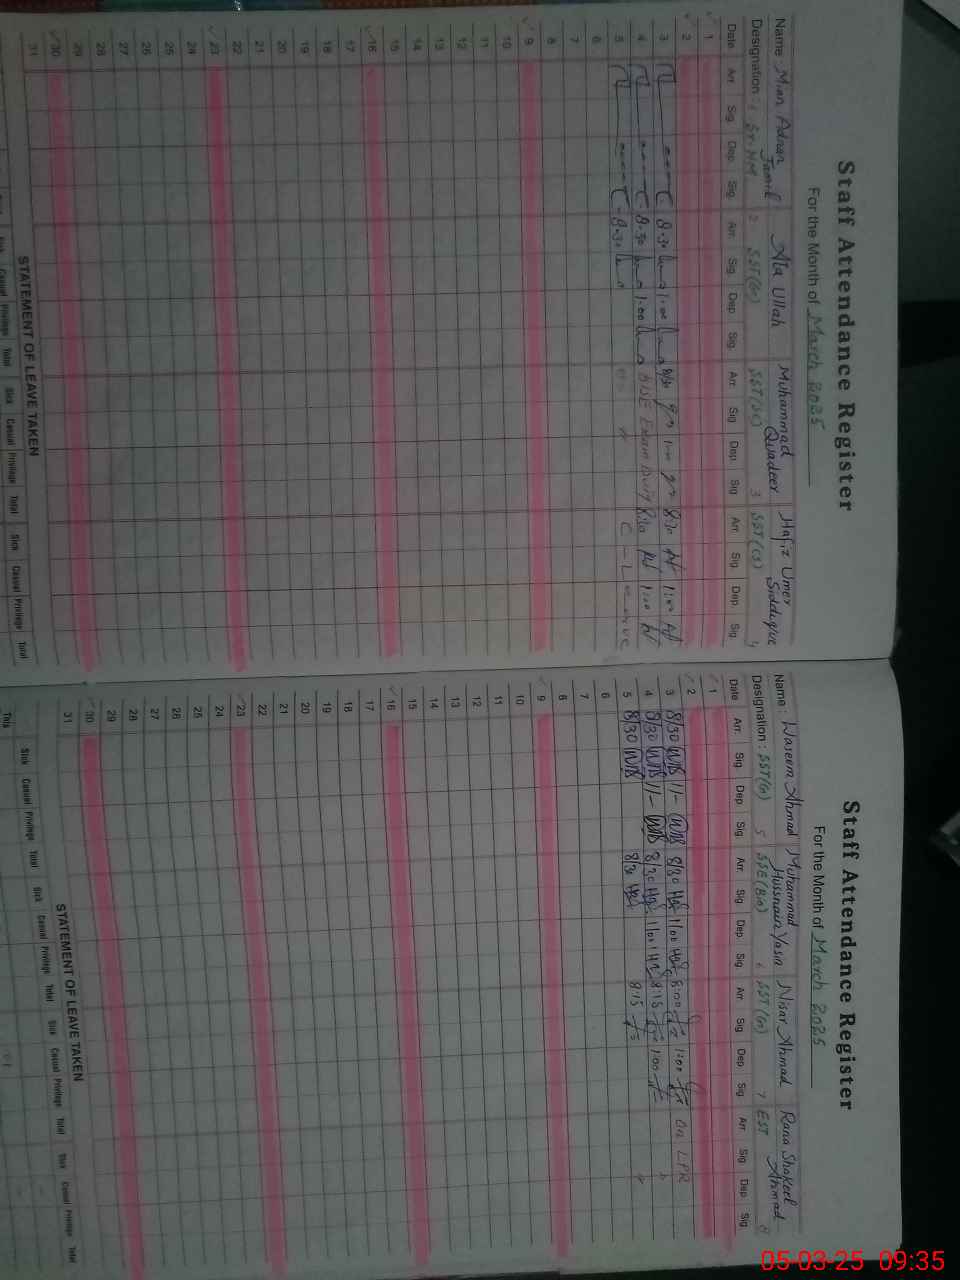 Staff Attendance Register
For the Month of March 2025
Name : Mian Adnan Jamil Ata Ullah Muhammad Quadeer Hafiz Umer Siddique
Designation : 1 2 SST(Gn) SST(Sc) 3 SST(CS) 4
Date Arr Sig Dep Sig Arr Sig Dep Sig Arr Sig Dep Sig Arr Sig Dep Sig
1
2
3 8.30 1:00 8/30 8:30 1:00
4 8.30 1:00 BISE Exam Duty 8:30 1:00
5 8.30 " C - Leave
6
7
8
9
10
11
12
13
14
15
16
17
18
19
20
21
22
23
24
25
26
27
28
29
30
31
STATEMENT OF LEAVE TAKEN
Sick Casual Privilege Total Sick Casual Privilege Total Sick Casual Privilege Total
Staff Attendance Register
For the Month of March 2025
Name : Waseem Ahmad Muhammad Hussnain Yasin Nisar Ahmad Rana Shakeel Ahmad
Designation : SST(Gn) 5 SSE(Bio) 6 SST(Gn) 7 EST 8
Date Arr Sig Dep Sig Arr Sig Dep Sig Arr Sig Dep Sig Arr Sig Dep Sig
1
2
3 8/30 WB 11- WB 8/30 1100 8:00 1:00 On LPR
4 8/30 WB 11- WB 8/30 1100 8:15 1:00 "
5 8/30 WB 8/30 8:15 "
6
7
8
9
10
11
12
13
14
15
16
17
18
19
20
21
22
23
24
25
26
27
28
29
30
31
STATEMENT OF LEAVE TAKEN
Sick Casual Privilege Total Sick Casual Privilege Total Sick Casual Privilege Total Sick Casual Privilege Total
This
05-03-25 09:35